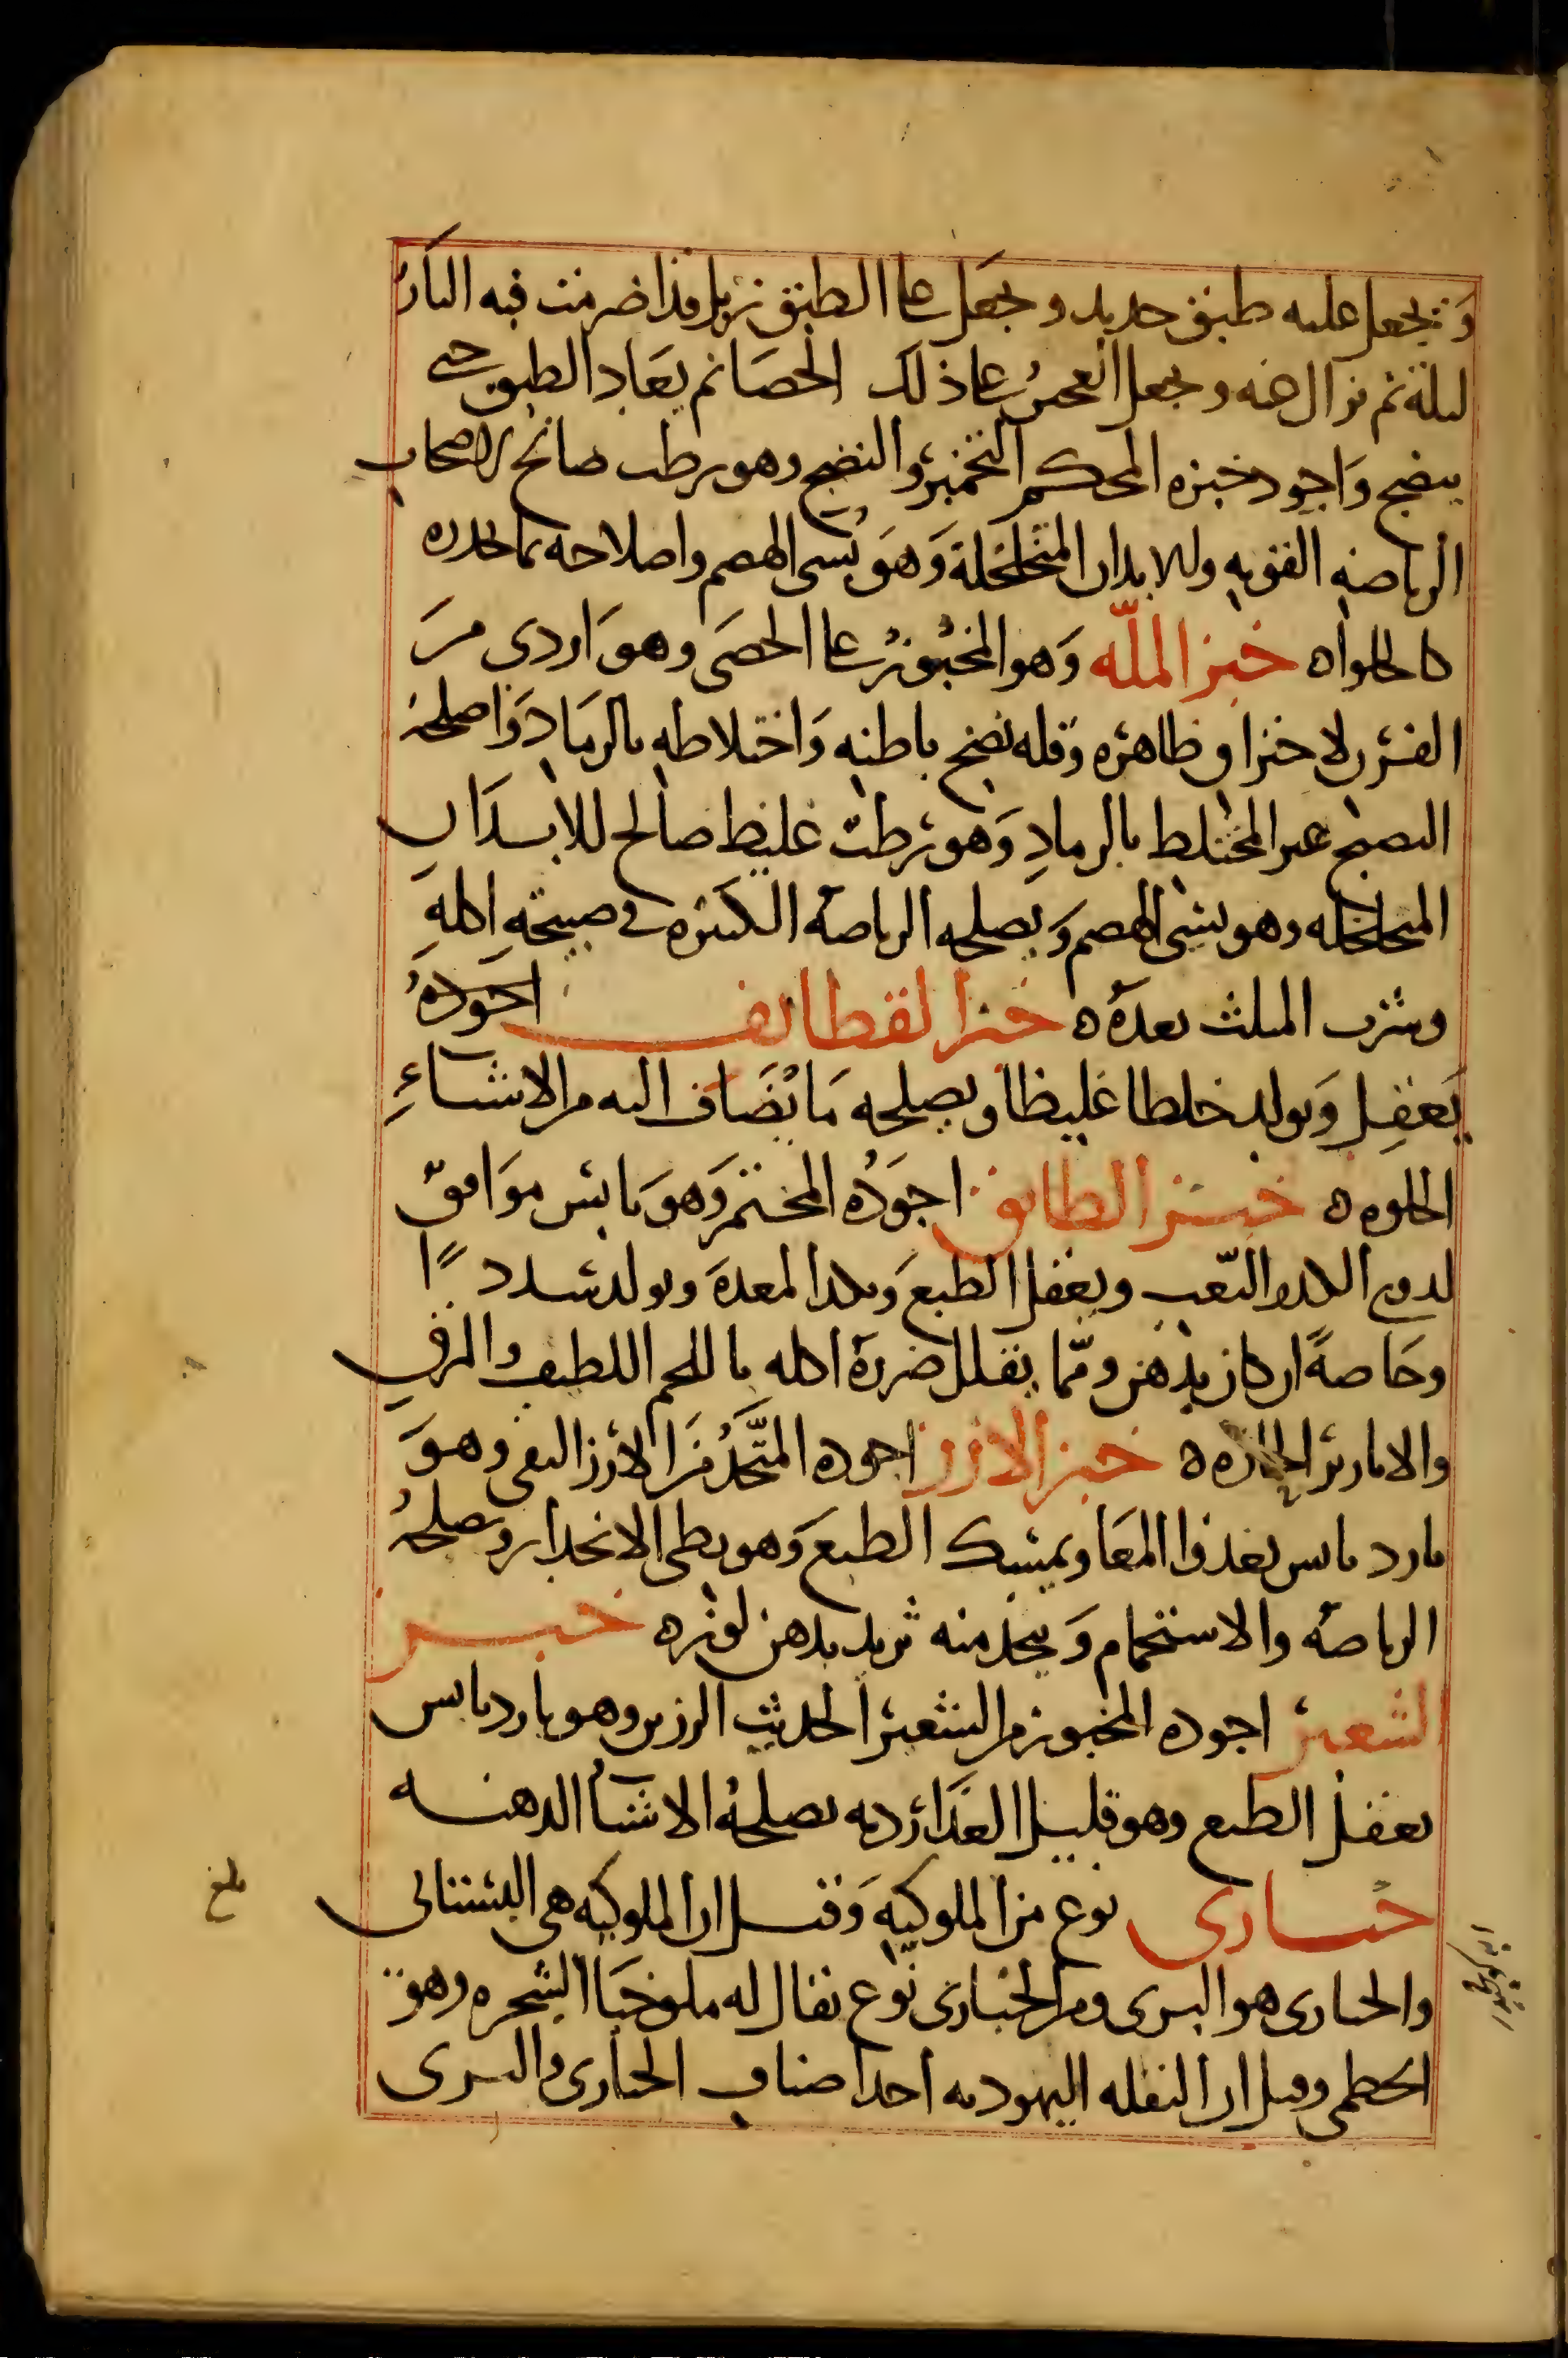 ويجعل عليه طبق حديد ويجعل على الطبق زبل قد اضرمت فيه النار
ليلة ثم يزال عنه ويجعل العجين على ذلك الحصا ثم يعاد الطبق حتى
ينضج وَاجود خبزه المحكم التخمير والنضج وهو رطب صالح لاصحاب
الرياضه القويه وللابدان المتخلخلة وَهوَ بُسي الهضم واصلاحه بما يحدره
كالحلواه خبز الملّه وَهو المخبوز على الحصَى وهوَ اردى مِن
الفرن لاحتراق ظاهره وقله نضج باطنه وَاختلاطه بالرمَاد وَاصلحه
النضيج غير المختلط بالرمادِ وَهو رطبٌ غليظ صالح للابدَان
المتخلخله وهو بسي الهضم وَيصلحه الرياضه الكثيره في صبيحةِ اكلهِ
وشرب المثلث بعدَهُ ه خبز القطايف اجَودهُ
يَعقِل وَيولد خلطا غليظا ويصلحه مَا يُضَاف اليه من الاشياءِ
الحلوه ه خبز الطابق اجوَدُه المختمر وَهوَ يابس موَافقٌ
لذوي الكد والتّعب ويعقل الطبعَ ويكد المعدةَ ويولد سُددًا
وخَاصةً ان كان بدهن وممّا يقلل ضررهُ اكله باللحم اللطيف والمرق
والابازير الحاره ه خبز الارز اجوده المتَّخذُ مَن الارز النقي وهوَ
بارد يابس يغذوا المعَا ويمسك الطبعَ وَهو بطى الانحدار ويصلحهُ
الرياضهُ والاستحمام وَيتخذ منه ثريد بدهن لوزه خبز
الشعير اجوده المخبوز من الشعير الحديث الرزين وهو بارد يابس
يعقل الطبع وهو قليل الغذَا رديه يصلحهُ الاشيآ الدهنيه
خبازى نوع من الملوكيهِ وَقيل ان الملوكيه هي البستانى
والخبازى هو البرى ومن الخبازى نوع يقال له ملوخيَا الشجره وهو
الخطمى وقيل ان البقله اليهوديه احد اصناف الخبازى والبرى
بلغ